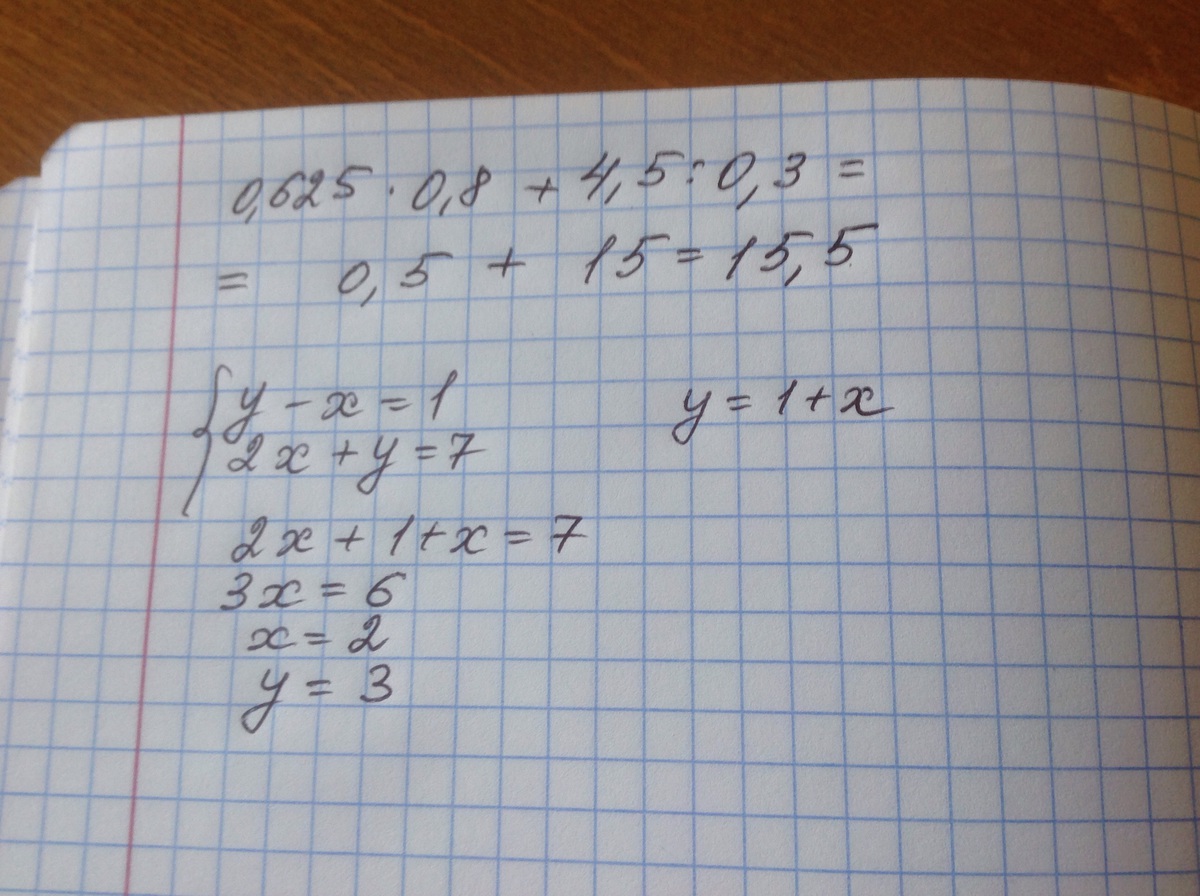 0,625 · 0,8 + 4,5 : 0,3 =
= 0,5 + 15 = 15,5
{ y - x = 1 y = 1 + x
2x + y = 7
2x + 1 + x = 7
3x = 6
x = 2
y = 3